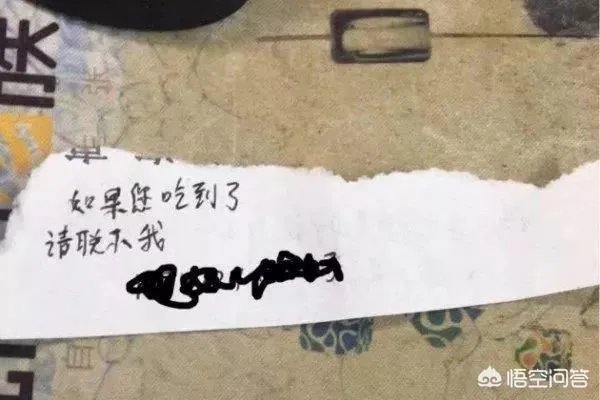 张
如果您吃到了
请联不我
自
悟空问答